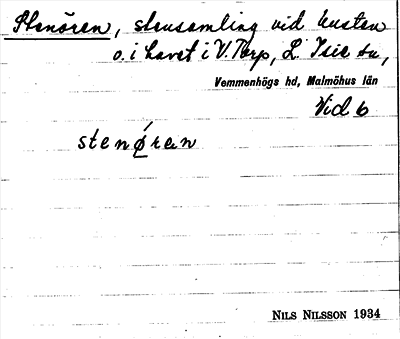 Stenören, stensamling vid kusten
o. i havet i V. Torp, L. Isie sn,
Vemmenhögs hd, Malmöhus län
Vid 6
stenǿran
NILS NILSSON 1934